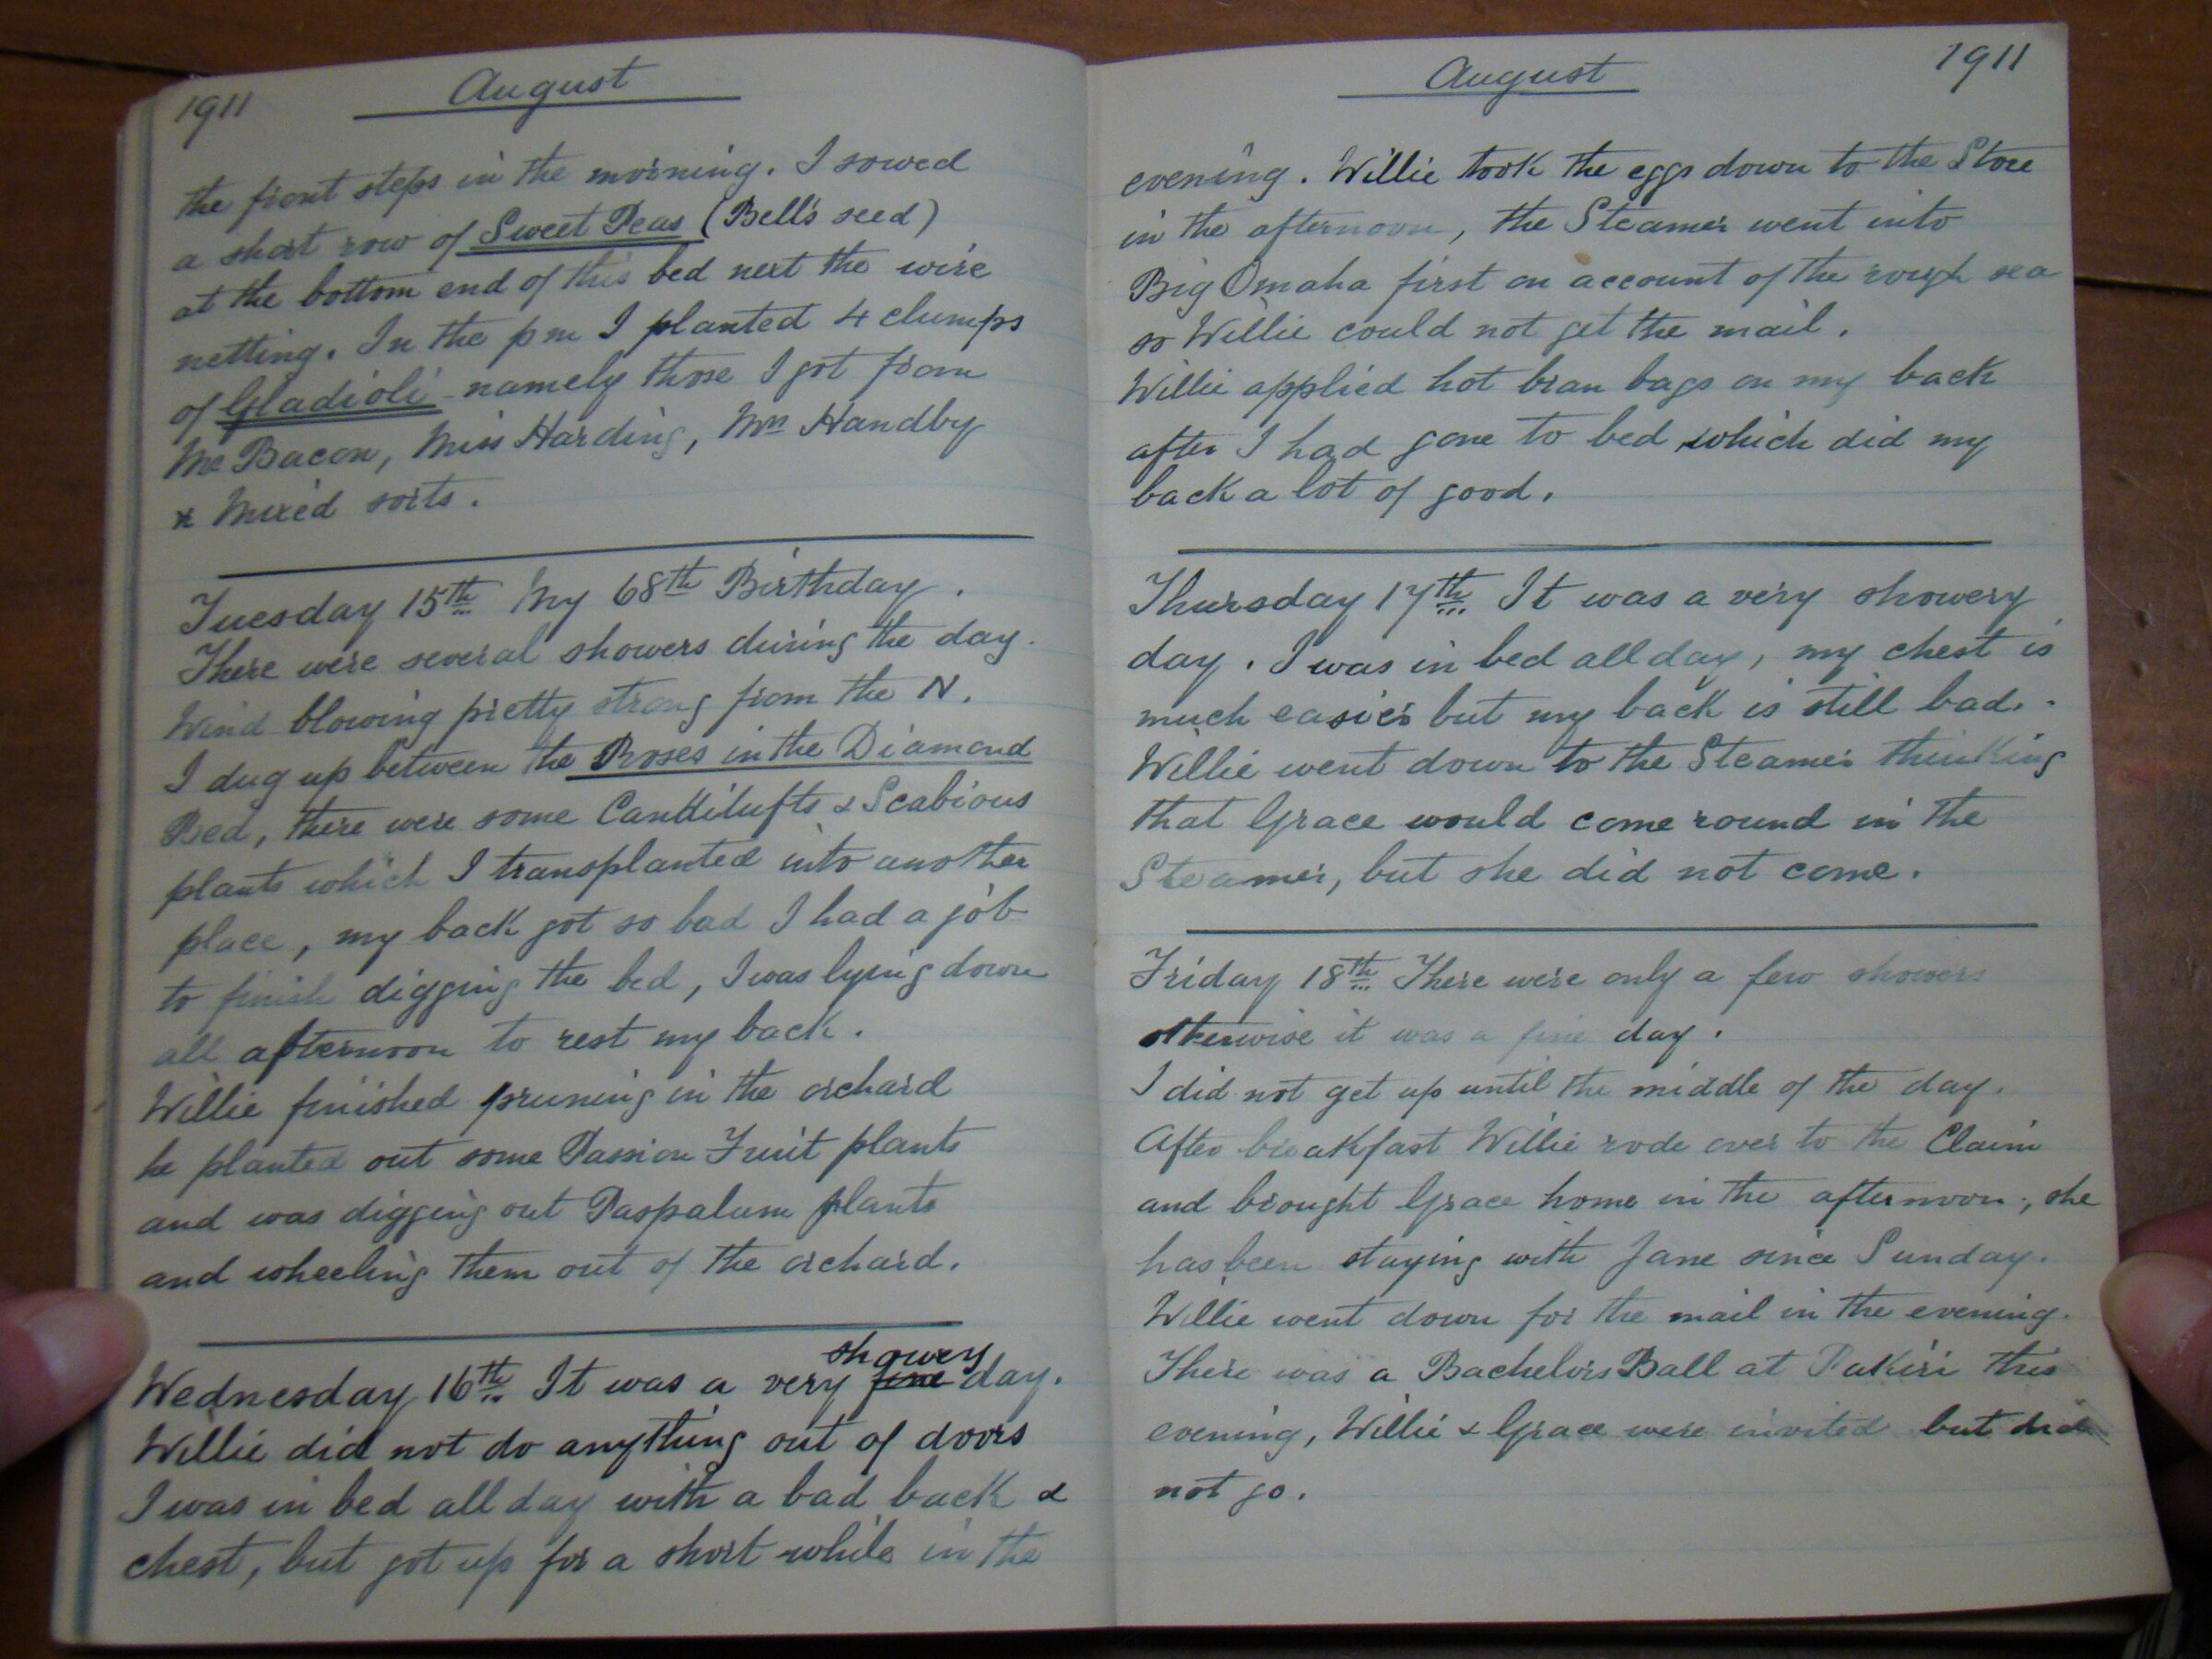 1911 August
the front steps in the morning. I sowed
a short row of Sweet Peas (Bell's seed)
at the bottom end of this bed next the wire
netting. In the pm I planted 4 clumps
of Gladioli - namely those I got from
Mr Bacon, Miss Harding, Mrs Handby
& Mixed sorts.
Tuesday 15th My 68th Birthday.
There were several showers during the day.
Wind blowing pretty strong from the N.
I dug up between the Roses in the Diamond
Bed, there were some Canditufts & Scabious
plants which I transplanted into another
place, my back got so bad I had a job
to finish digging the bed, I was lying down
all afternoon to rest my back.
Willie finished pruning in the orchard
he planted out some Passion Fruit plants
and was digging out Paspalum plants
and wheeling them out of the orchard.
Wednesday 16th It was a very fine showery day.
Willie did not do anything out of doors
I was in bed all day with a bad back &
chest, but got up for a short while in the
August 1911
evening. Willie took the eggs down to the Store
in the afternoon, the Steamer went into
Big Omaha first on account of the rough sea
so Willie could not get the mail.
Willie applied hot bran bags on my back
after I had gone to bed which did my
back a lot of good.
Thursday 17th It was a very showery
day. I was in bed all day, my chest is
much easier but my back is still bad.
Willie went down to the Steamer thinking
that Grace would come round in the
Steamer, but she did not come.
Friday 18th There were only a few showers
otherwise it was a fine day.
I did not get up until the middle of the day.
After breakfast Willie rode over to the Claim
and brought Grace home in the afternoon, she
has been staying with Jane since Sunday.
Willie went down for the mail in the evening.
There was a Bachelors Ball at Pakiri this
evening, Willie & Grace were invited but did
not go.